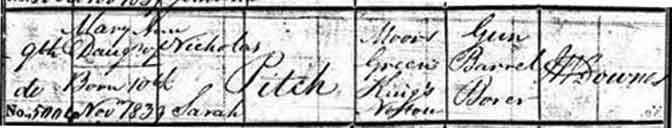 9th
do
No. 500
Mary Ann
Daug. of
Born 10th
Nov 1839
Nicholas
Sarah
Pitch
Moors
Green
King's
Norton
Gun
Barrel
Borer